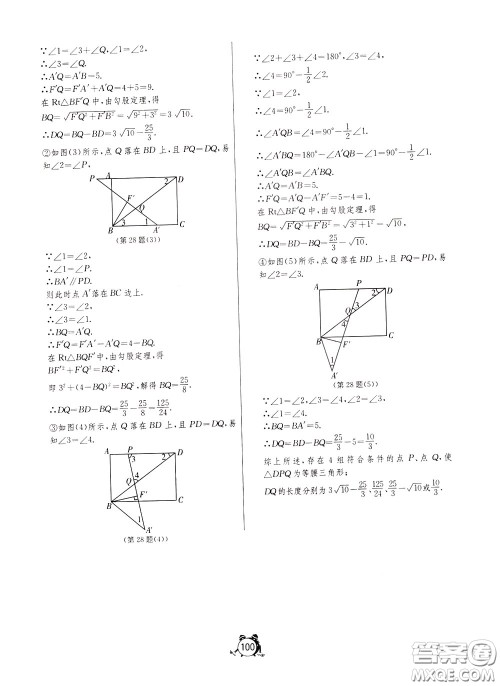 ∵∠1=∠3+∠Q,∠1=∠2,
∴∠3=∠Q.
∴A′Q=A′B=5.
∴F′Q=F′A′+A′Q=4+5=9.
在Rt△BF′Q中,由勾股定理,得
BQ=√(F′Q²+F′B²)=√(9²+3²)=3√10.
∴DQ=BQ-BD=3√10-25/3.
②如图(3)所示,点Q落在BD上,且PQ=DQ,易
知∠2=∠P,
P A 2 D
F′
Q
B 3 1 A′ C
(第28题(3))
∵∠1=∠2,
∴∠1=∠P.
∴BA′∥PD.
则此时点A′落在BC边上.
∵∠3=∠2,
∴∠3=∠1.
∴BQ=A′Q.
∴F′Q=F′A′-A′Q=4-BQ.
在Rt△BQF′中,由勾股定理,得
BF′²+F′Q²=BQ²,
即3²+(4-BQ)²=BQ²,解得BQ=25/8.
∴DQ=BD-BQ=25/3-25/8=125/24.
③如图(4)所示,点Q落在BD上,且PD=DQ,易
知∠3=∠4.
A P D
3 2
Q 4
F′
B 1 C
A′
(第28题(4))
∵∠2+∠3+∠4=180°,∠3=∠4,
∴∠4=90°-1/2∠2.
∵∠1=∠2,
∴∠4=90°-1/2∠1.
∴∠A′QB=∠4=90°-1/2∠1.
∴∠A′BQ=180°-∠A′QB-∠1=90°-1/2∠1.
∴∠A′QB=∠A′BQ.
∴A′Q=A′B=5.
∴F′Q=A′Q-A′F′=5-4=1.
在Rt△BF′Q中,由勾股定理,得
BQ=√(F′Q²+F′B²)=√(3²+1²)=√10.
∴DQ=BD-BQ=25/3-√10.
④如图(5)所示,点Q落在BD上,且PQ=PD,易
知∠2=∠3.
A P D
Q 3 2
4
B F′ C
1
A′
(第28题(5))
∵∠1=∠2,∠3=∠4,∠2=∠3,
∴∠1=∠4.
∴BQ=BA′=5.
∴DQ=BD-BQ=25/3-5=10/3.
综上所述,存在4组符合条件的点P、点Q,使
△DPQ为等腰三角形;
DQ的长度分别为3√10-25/3、125/24、25/3-√10或10/3.
100
答案圈
MXQE.COM